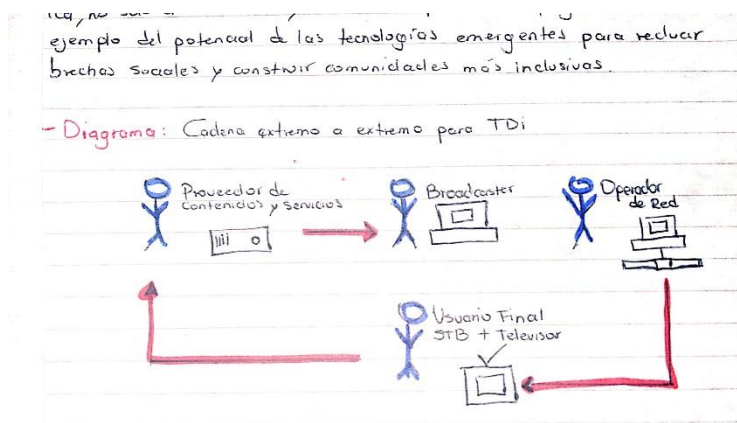 ejemplo del potencial de las tecnologías emergentes para reducir
brechas sociales y construir comunidades más inclusivas.
- Diagrama: Cadena extremo a extremo para TDi
Proveedor de
contenidos y servicios
Broadcaster
Operador
de Red
Usuario Final
STB + Televisor